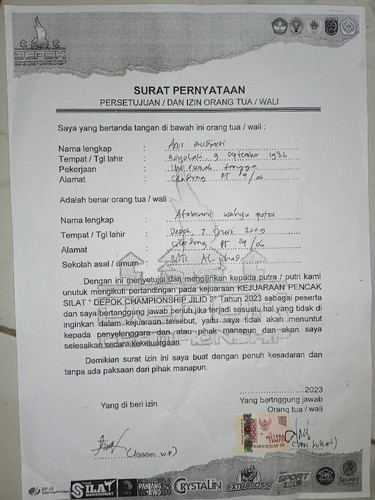 DEPOK
CHAMPIONSHIP
SURAT PERNYATAAN
PERSETUJUAN / DAN IZIN ORANG TUA / WALI
Saya yang bertanda tangan di bawah ini orang tua / wali :
Nama lengkap : Anis
Tempat / Tgl lahir : Boyolali, 9 september 1986
Pekerjaan : Ibu rumah tangga
Alamat : Cilodong RT 04/06
Adalah benar orang tua / wali
Nama lengkap : wahyu putra
Tempat / Tgl lahir : Depok, 7 2009
Alamat : Cilodong RT 04/06
Sekolah asal / umum : MTS AL
Dengan ini menyetujui dan mengijinkan kepada putra / putri kami
unutuk mengikuti pertandingan pada kejuaraan KEJUARAAN PENCAK
SILAT " DEPOK CHAMPIONSHIP JILID 2" Tahun 2023 sebagai peserta
dan saya bertanggung jawab penuh jika terjadi sesuatu hal yang tidak di
inginkan dalam kejuaraan tersebut, yaitu saya tidak akan menuntut
kepada penyelenggara dan atau pihak manapun dan akan saya
selesaikan secara Kekeluargaan.
Demikian surat izin ini saya buat dengan penuh kesadaran dan
tanpa ada paksaan dari pihak manapun.
2023
Yang di beri izin
Yang bertnggung jawab
Orang tua / wali
METERAI
TEMPEL
SILAT
MANAGEMENT
CRYSTALIN
EXTRAJOSS
SPORT